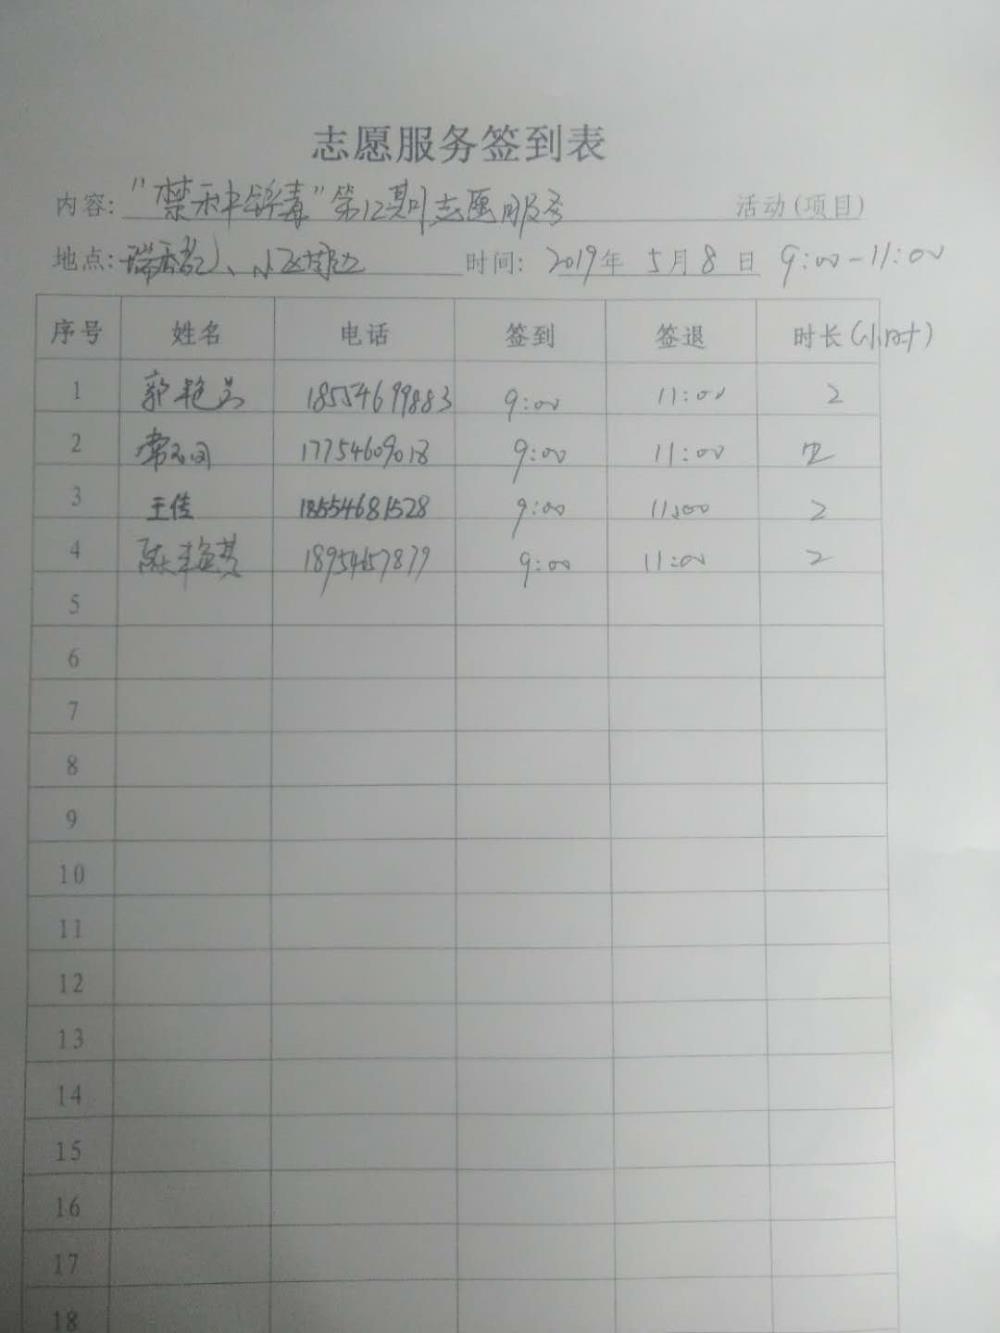 志愿服务签到表
内容: "禁种铲毒"第12期志愿服务 活动(项目)
地点: 小区 时间: 2019年 5月8日 9:00-11:00
序号 姓名 电话 签到 签退 时长(小时)
1 郭艳 18554699883 9:00 11:00 2
2 常 17754609018 9:00 11:00 2
3 王佳 18554681528 9:00 11:00 2
4 陈 9:00 11:00 2
5
6
7
8
9
10
11
12
13
14
15
16
17
18